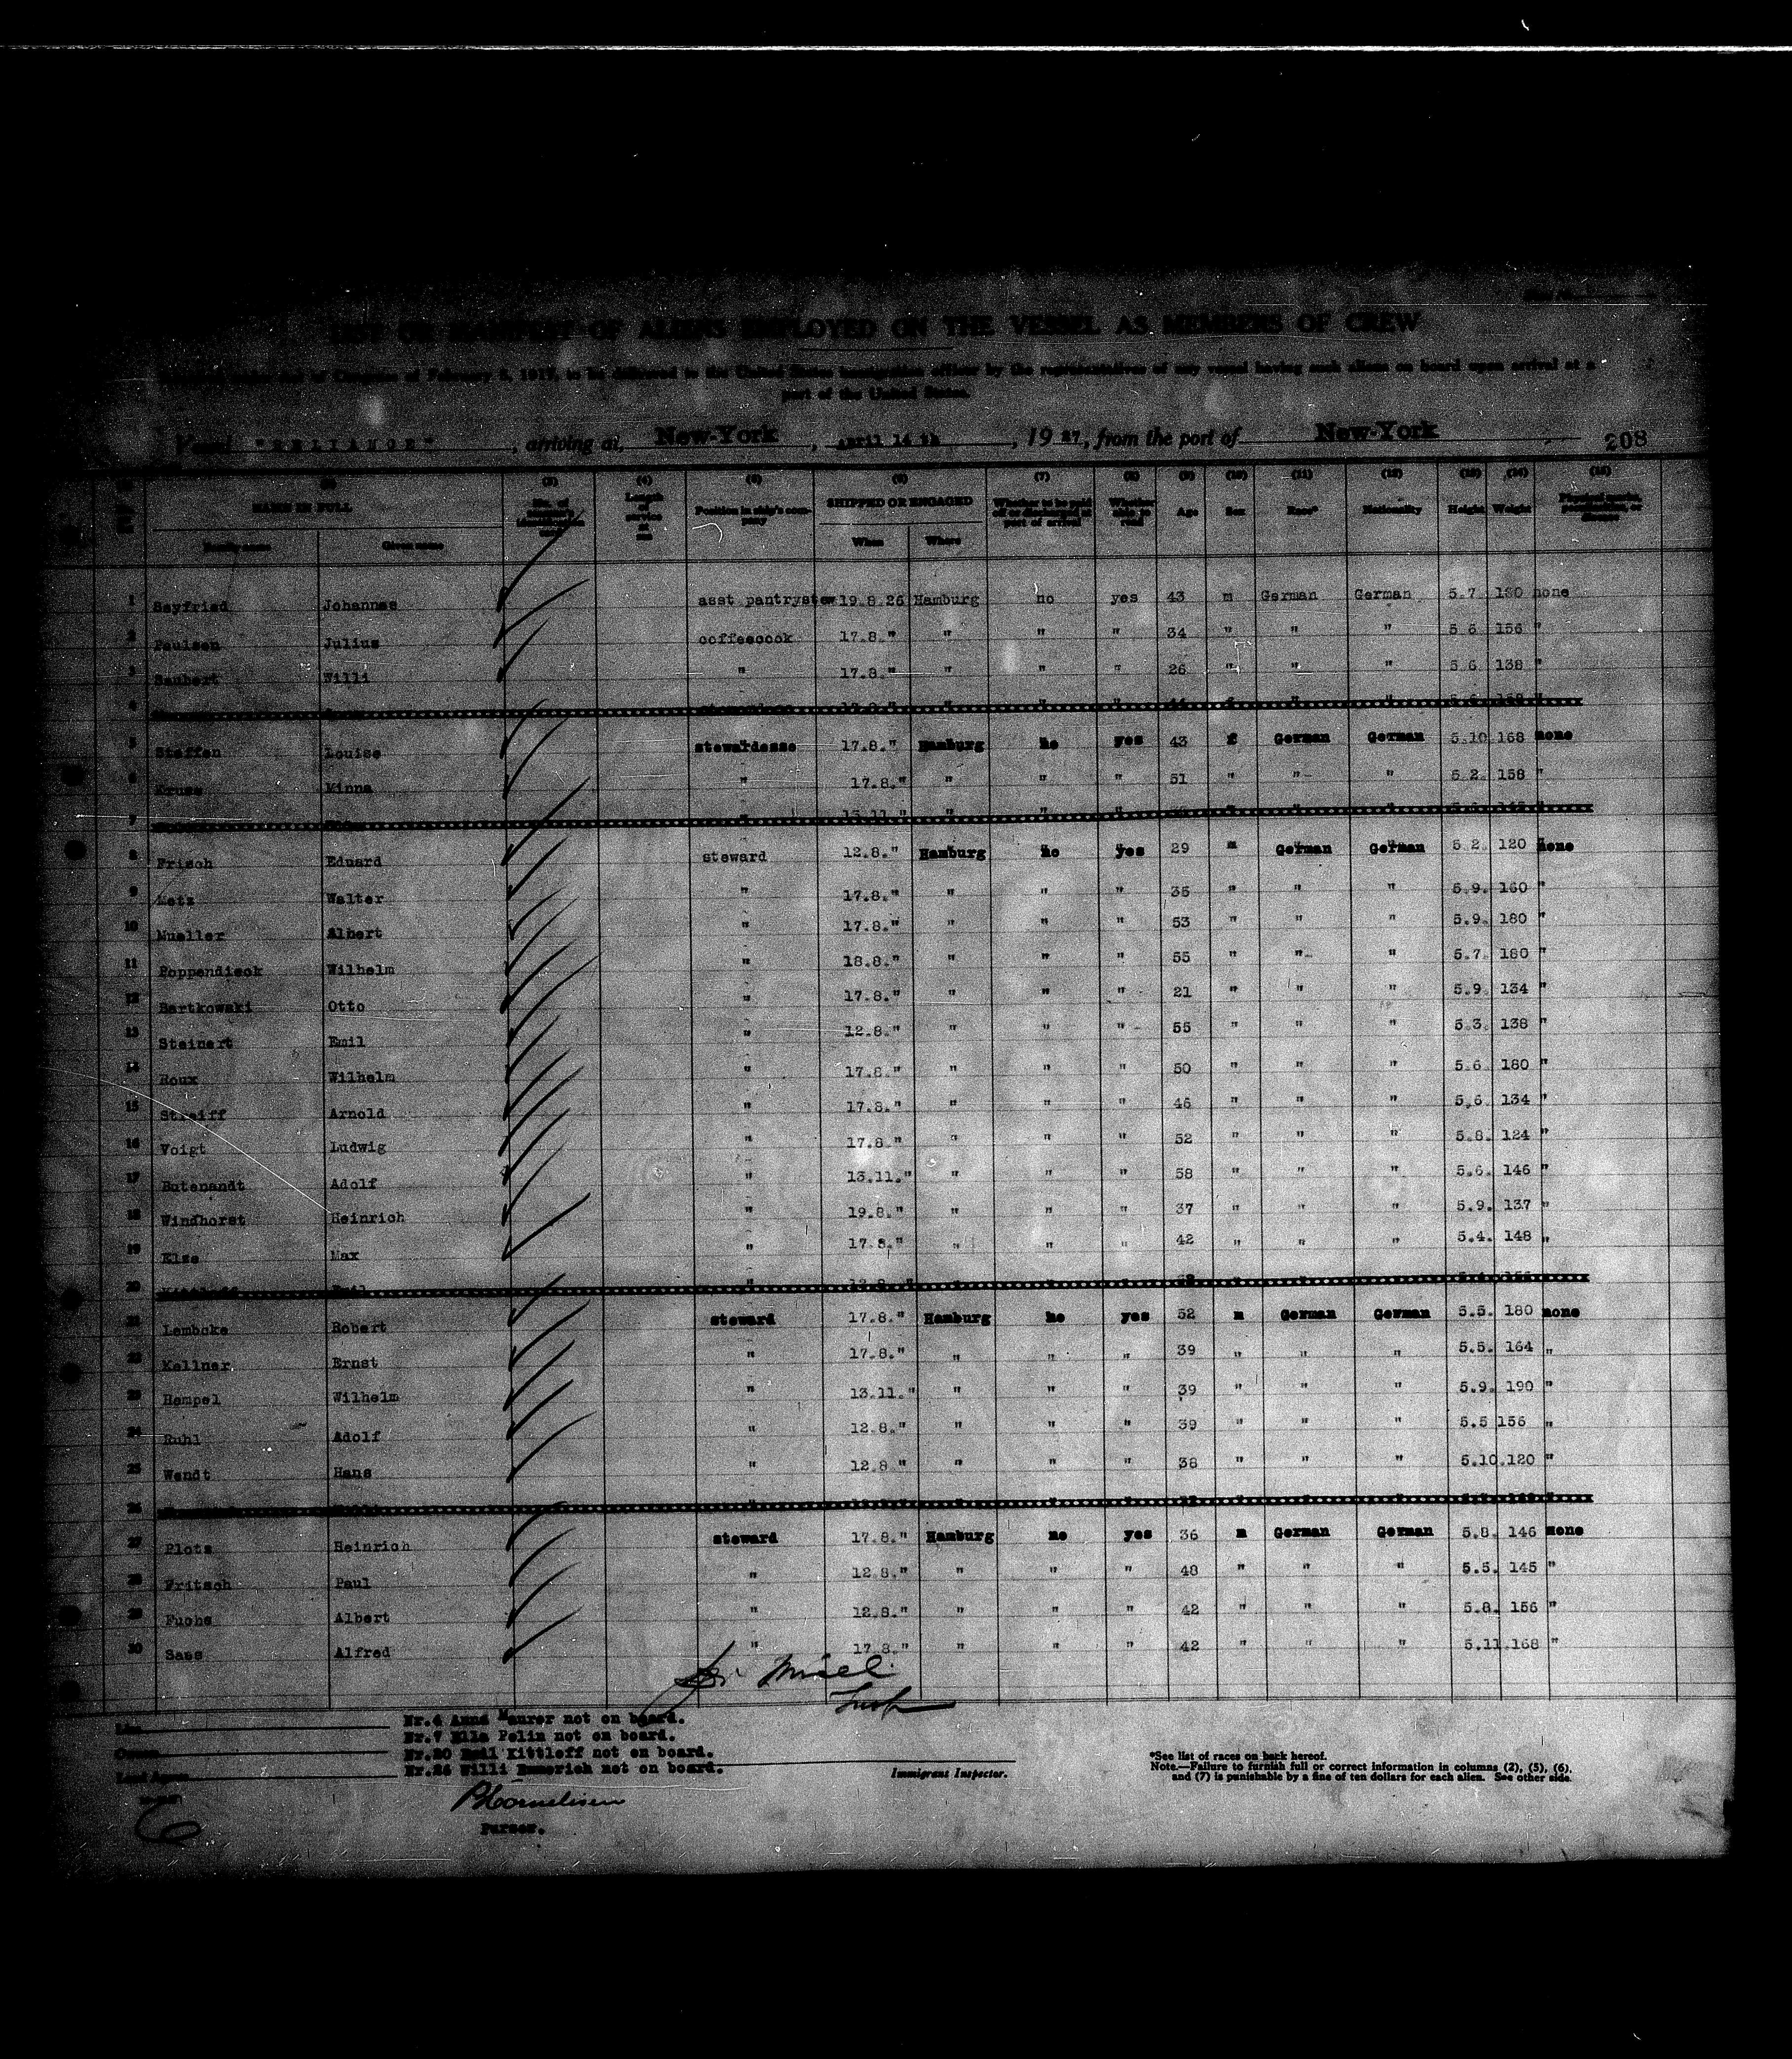 LIST OR MANIFEST OF ALIENS EMPLOYED ON THE VESSEL AS MEMBERS OF CREW
act of Congress of February 5, 1917, to be delivered to the United States immigration officer by the representatives of any vessel having such aliens on board upon arrival at a
port of the United States.
Vessel "RELIANCE", arriving at New-York, April 14 th, 1927, from the port of New-York 208
(3) (4) (5) (6) (7) (8) (9) (10) (11) (12) (13) (14) (15)
NAME IN FULL Length of service at sea Position in ship's company SHIPPED OR ENGAGED Whether to be paid off or discharged at port of arrival Whether able to read Age Sex Race* Nationality Height Weight Physical marks, peculiarities, or disease
Family name Given name When Where
1 Seyfried Johannes asst pantrystew 19.8.26 Hamburg no yes 43 m German German 5.7. 180 none
2 Paulsen Julius coffeecook 17.8." " " " 34 " " " 5 6 156 "
3 Saubert Willi " 17.8." " " " 26 " " " 5.6. 138 "
4
5 Steffen Louise stewardesse 17.8." Hamburg no yes 43 f German German 5.10. 168 none
6 Kruse Minna " 17.8." " " " 51 " " " 5 2. 158 "
7
8 Frisch Eduard steward 12.8." Hamburg no yes 29 m German German 5 2. 120 none
9 Metz Walter " 17.8." " " " 35 " " " 5.9. 160 "
10 Mueller Albert " 17.8." " " " 53 " " " 5.9. 180 "
11 Poppendieck Wilhelm " 18.8." " " " 55 " " " 5.7. 180 "
12 Bartkowski Otto " 17.8." " " " 21 " " " 5.9. 134 "
13 Steinert Emil " 12.8." " " " 55 " " " 5.3. 138 "
14 Roux Wilhelm " 17.8." " " " 50 " " " 5.6. 180 "
15 Streiff Arnold " 17.8." " " " 46 " " " 5.6. 134 "
16 Voigt Ludwig " 17.8." " " " 52 " " " 5.8. 124 "
17 Butenandt Adolf " 13.11." " " " 58 " " " 5.6. 146 "
18 Windhorst Heinrich " 19.8." " " " 37 " " " 5.9. 137 "
19 Else Max " 17.8." " " " 42 " " " 5.4. 148 "
20 Kittloff Emil " 12.8." "
21 Lembcke Robert steward 17.8." Hamburg no yes 52 m German German 5.5. 180 none
22 Kellner Ernst " 17.8." " " " 39 " " " 5.5. 164 "
23 Hempel Wilhelm " 13.11." " " " 39 " " " 5.9. 190 "
24 Ruhl Adolf " 12.8." " " " 39 " " " 5.5 156 "
25 Wendt Hans " 12.8." " " " 38 " " " 5.10. 120 "
26
27 Plots Heinrich steward 17.8." Hamburg no yes 36 m German German 5.8. 146 none
28 Fritsch Paul " 12.8." " " " 48 " " " 5.5. 145 "
29 Fuchs Albert " 12.8." " " " 42 " " " 5.8. 156 "
30 Sass Alfred " 17.8." " " " 42 " " " 5.11. 168 "
Nr.4 Anna Maurer not on board.
Nr.7 Ella Polin not on board.
Nr.20 Emil Kittloff not on board.
Nr.26 Willi Emmerich not on board.
Immigrant Inspector.
*See list of races on back hereof.
Note.—Failure to furnish full or correct information in columns (2), (5), (6),
and (7) is punishable by a fine of ten dollars for each alien. See other side.
PCornelisen
Purser.